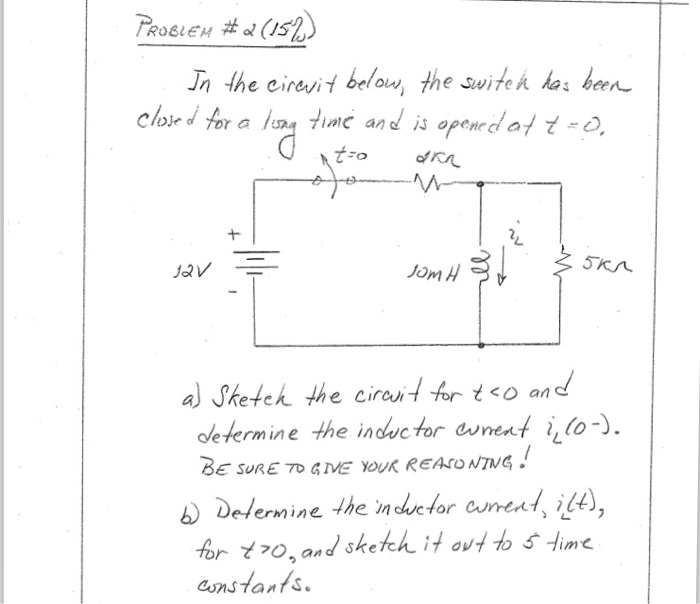 PROBLEM #2 (15%)
In the circuit below, the switch has been
closed for a long time and is opened at t=0.
t=0 2KΩ
+
12V
-
10mH
iL
5KΩ
a) Sketch the circuit for t<0 and
determine the inductor current iL(0-).
BE SURE TO GIVE YOUR REASONING!
b) Determine the inductor current, iL(t),
for t>0, and sketch it out to 5 time
constants.